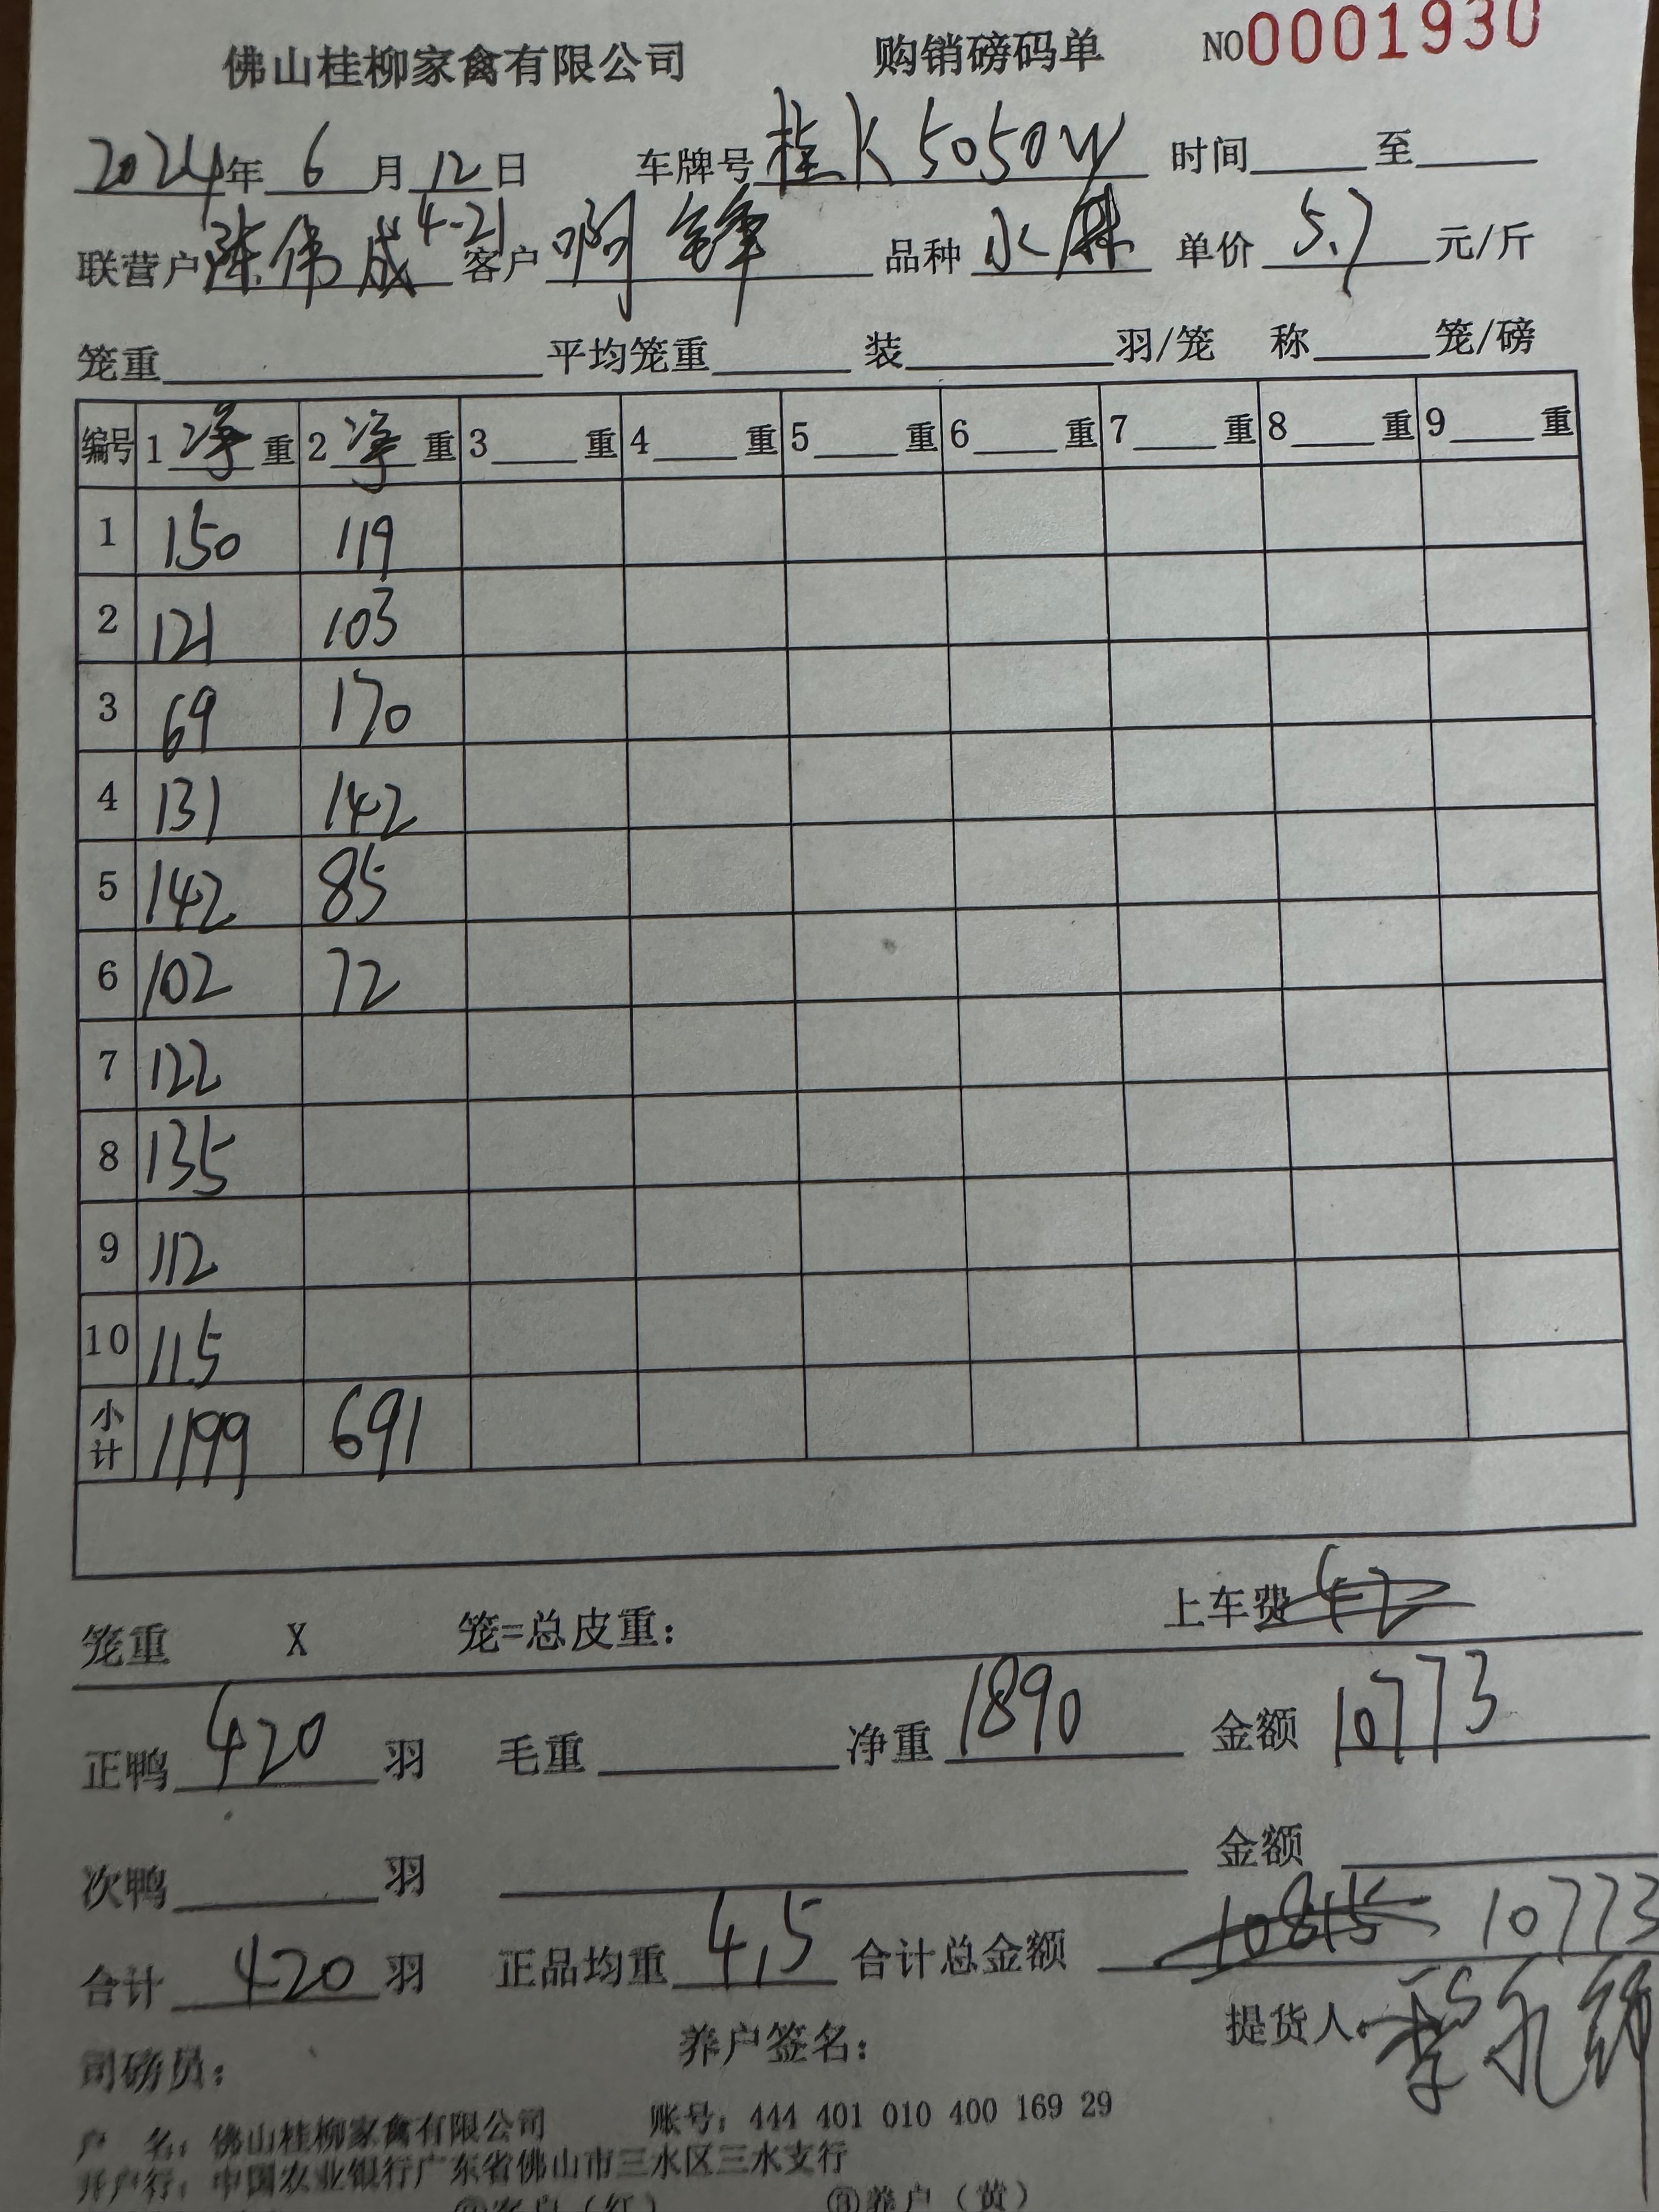 佛山桂柳家禽有限公司 购销磅码单 NO0001930
2024年 6 月 12 日 车牌号 桂K5050W 时间 至
联营户 陈伟成 4-21 客户 啊锋 品种 水麻 单价 5.7 元/斤
笼重 平均笼重 装 羽/笼 称 笼/磅
编号 1 净 重 2 净 重 3 重 4 重 5 重 6 重 7 重 8 重 9 重
1 150 119
2 121 103
3 69 170
4 131 142
5 142 85
6 102 72
7 122
8 135
9 112
10 115
小计 1199 691
笼重 X 笼=总皮重: 上车费 42
正鸭 420 羽 毛重 净重 1890 金额 10773
次鸭 羽 金额
合计 420 羽 正品均重 4.5 合计总金额 10815 10773
司磅员: 养户签名: 提货人:
户 名: 佛山桂柳家禽有限公司 账号: 444 401 010 400 169 29
开户行: 中国农业银行广东省佛山市三水区三水支行
②客户（红） ③养户（黄）